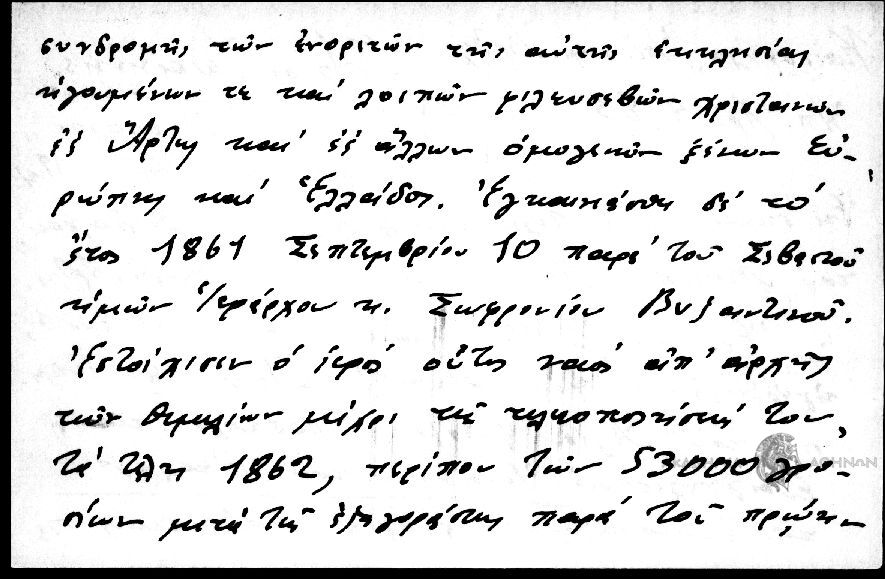 συνδρομῆς τῶν ἐνοριτῶν τῆς αὐτῆς ἐκκλησίας
ἡγουμένων τε καὶ λοιπῶν φιλευσεβῶν χριστιανῶν
ἐξ Ἄρτης καὶ ἐξ ἄλλων ὁμογενῶν ξένων Εὐ-
ρώπης καὶ Ἑλλάδος. Ἐγκαινιάσθη δὲ τὸ
ἔτος 1861 Σεπτεμβρίου 10 παρὰ τοῦ Σεβαστοῦ
ἡμῶν Ἱεράρχου κ. Σωφρονίου Βυζαντινοῦ.
Ἐστοίχισεν ὁ ἱερὸς οὗτος ναὸς ἀπ' ἀρχῆς
τῶν θεμελίων μέχρι τῆς τελειοποιήσεώς του,
τὰ τέλη 1862, περίπου τῶν 53000 γρο-
σίων μετὰ τῆς ἐξαγοράσεως παρὰ τοῦ πρώην
ΑΘΗΝΩΝ